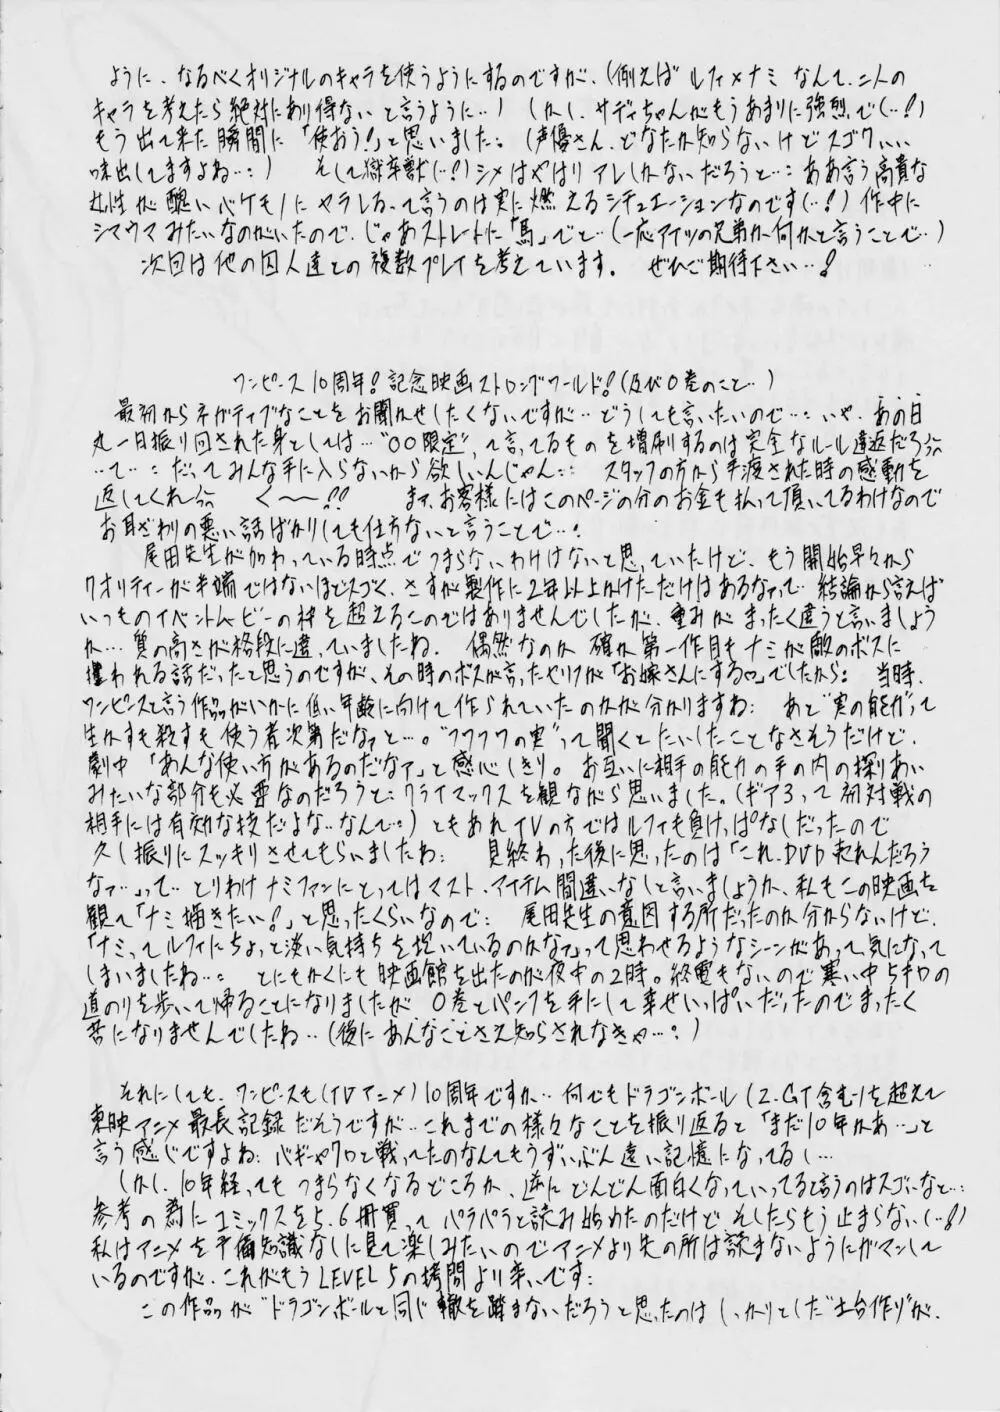 ように、なるべくオリジナルのキャラを使うようにするのですが、(例えば ルフィ×ナミ なんて、二人の
キャラを考えたら絶対にあり得ない と言うように‥) しかし、サディちゃんがもうあまりに強烈で(‥!)
もう出て来た瞬間に「使おう!」と思いました: (声優さん、どなたか知らないけどスゴクいい
味出してますよね‥:) そして獄卒獣(‥!)シメはやはり アレしかないだろうと‥: ああ言う高貴な
女性が醜いバケモノにヤラレるって言うのは実に燃えるシチュエーションなのです(‥!) 作中に
シマウマみたいなのがいたので、じゃあストレートに「馬」でと‥(一応アイツの兄弟か何かと言うことで‥)
次回は他の囚人達との複数プレイを考えています。 ぜひご期待下さい‥!
ワンピース10周年!記念映画ストロングワールド!(及び0巻のこと‥)
最初からネガティブなことをお聞かせしたくないですが‥どうしても言いたいので‥: いや、あの日
丸一日振り回された身としては‥"○○限定"って言ってるものを増刷するのは完全なルール違反だろ
‥て‥: だってみんな手に入らないから欲しいんじゃん:: スタッフの方から手渡された時の感動を
返してくれ く〜!! まァ、お客様にはこのページの分のお金も払って頂いてるわけなので
お耳ざわりの悪い話ばかりしても仕方ないと言うことで‥:
尾田先生が加わっている時点でつまらないわけはないと思っていたけど、もう開始早々から
クオリティーが半端ではないほどスゴく、さすが製作に2年以上かけただけはあるなって‥ 結論から言えば
いつものイベントムービーの枠を超えるものではありませんでしたが、重みがまったく違うと言いましょう
か‥ 質の高さが格段に違っていましたね。 偶然なのか 確か第一作目もナミが敵のボスに
攫われる話だったと思うのですが、その時のボスが言ったセリフが「お嫁さんにする♡」でしたから: 当時、
ワンピースと言う作品がいかに低い年齢に向けて作られていたのかが分かりますね: あと"実の能力"って
生かすも殺すも使う者次第だなァと‥。"フワフワの実"って聞くとたいしたことなさそうだけど、
劇中「あんな使い方があるのだなァ」と感心しきり。お互いに相手の能力の手の内の探りあい
みたいな部分も必要なのだろうと: クライマックスを観ながら思いました。(ギア3って初対戦の
相手には有効な技だよな‥なんて‥:) ともあれTVの方ではルフィも負けっぱなしだったので
久し振りにスッキリさせてもらいましたわ: 見終わった後に思ったのは「これ、DVD売れんだろう
なァ‥」って‥ とりわけナミファンにとってはマスト・アイテム間違いなしと言いましょうか、私もこの映画を
観て「ナミ描きたい!」と思ったくらいなので: 尾田先生の意図する所だったのか分からないけど、
「ナミってルフィにちょっと淡い気持ちを抱いているのかなァ」って思わせるようなシーンがあって、気になって
しまいましたね‥: とにもかくにも映画館を出たのが夜中の2時。終電もないので寒い中5キロの
道のりを歩いて帰ることになりましたが 0巻とパンフを手にして幸せいっぱいだったのでまったく
苦になりませんでしたね‥(後にあんなことさえ知らされなきゃ‥:)
それにしても、ワンピースも(TVアニメ)10周年ですか‥ 何でもドラゴンボール(Z、GT含む)を超えて
東映アニメ最長記録だそうですが‥これまでの様々なことを振り返ると「まだ10年かあ‥」と
言う感じですよね: バギーやクロと戦ってたのなんてもうずいぶん遠い記憶になってるし‥
しかし、10年経ってもつまらなくなるどころか、逆にどんどん面白くなっていってると言うのはスゴいなと‥:
参考の為にコミックスを5、6冊買ってパラパラと読み始めたのだけど そしたらもう止まらない(‥!)
私はアニメを予備知識なしに見て楽しみたいのでアニメより先の所は読まないようにガマンして
いるのですが、これがもうLEVEL5の拷問より辛いです:
この作品が"ドラゴンボールと同じ轍を踏まないだろうと思ったのはしっかりとした"土台作り"が、